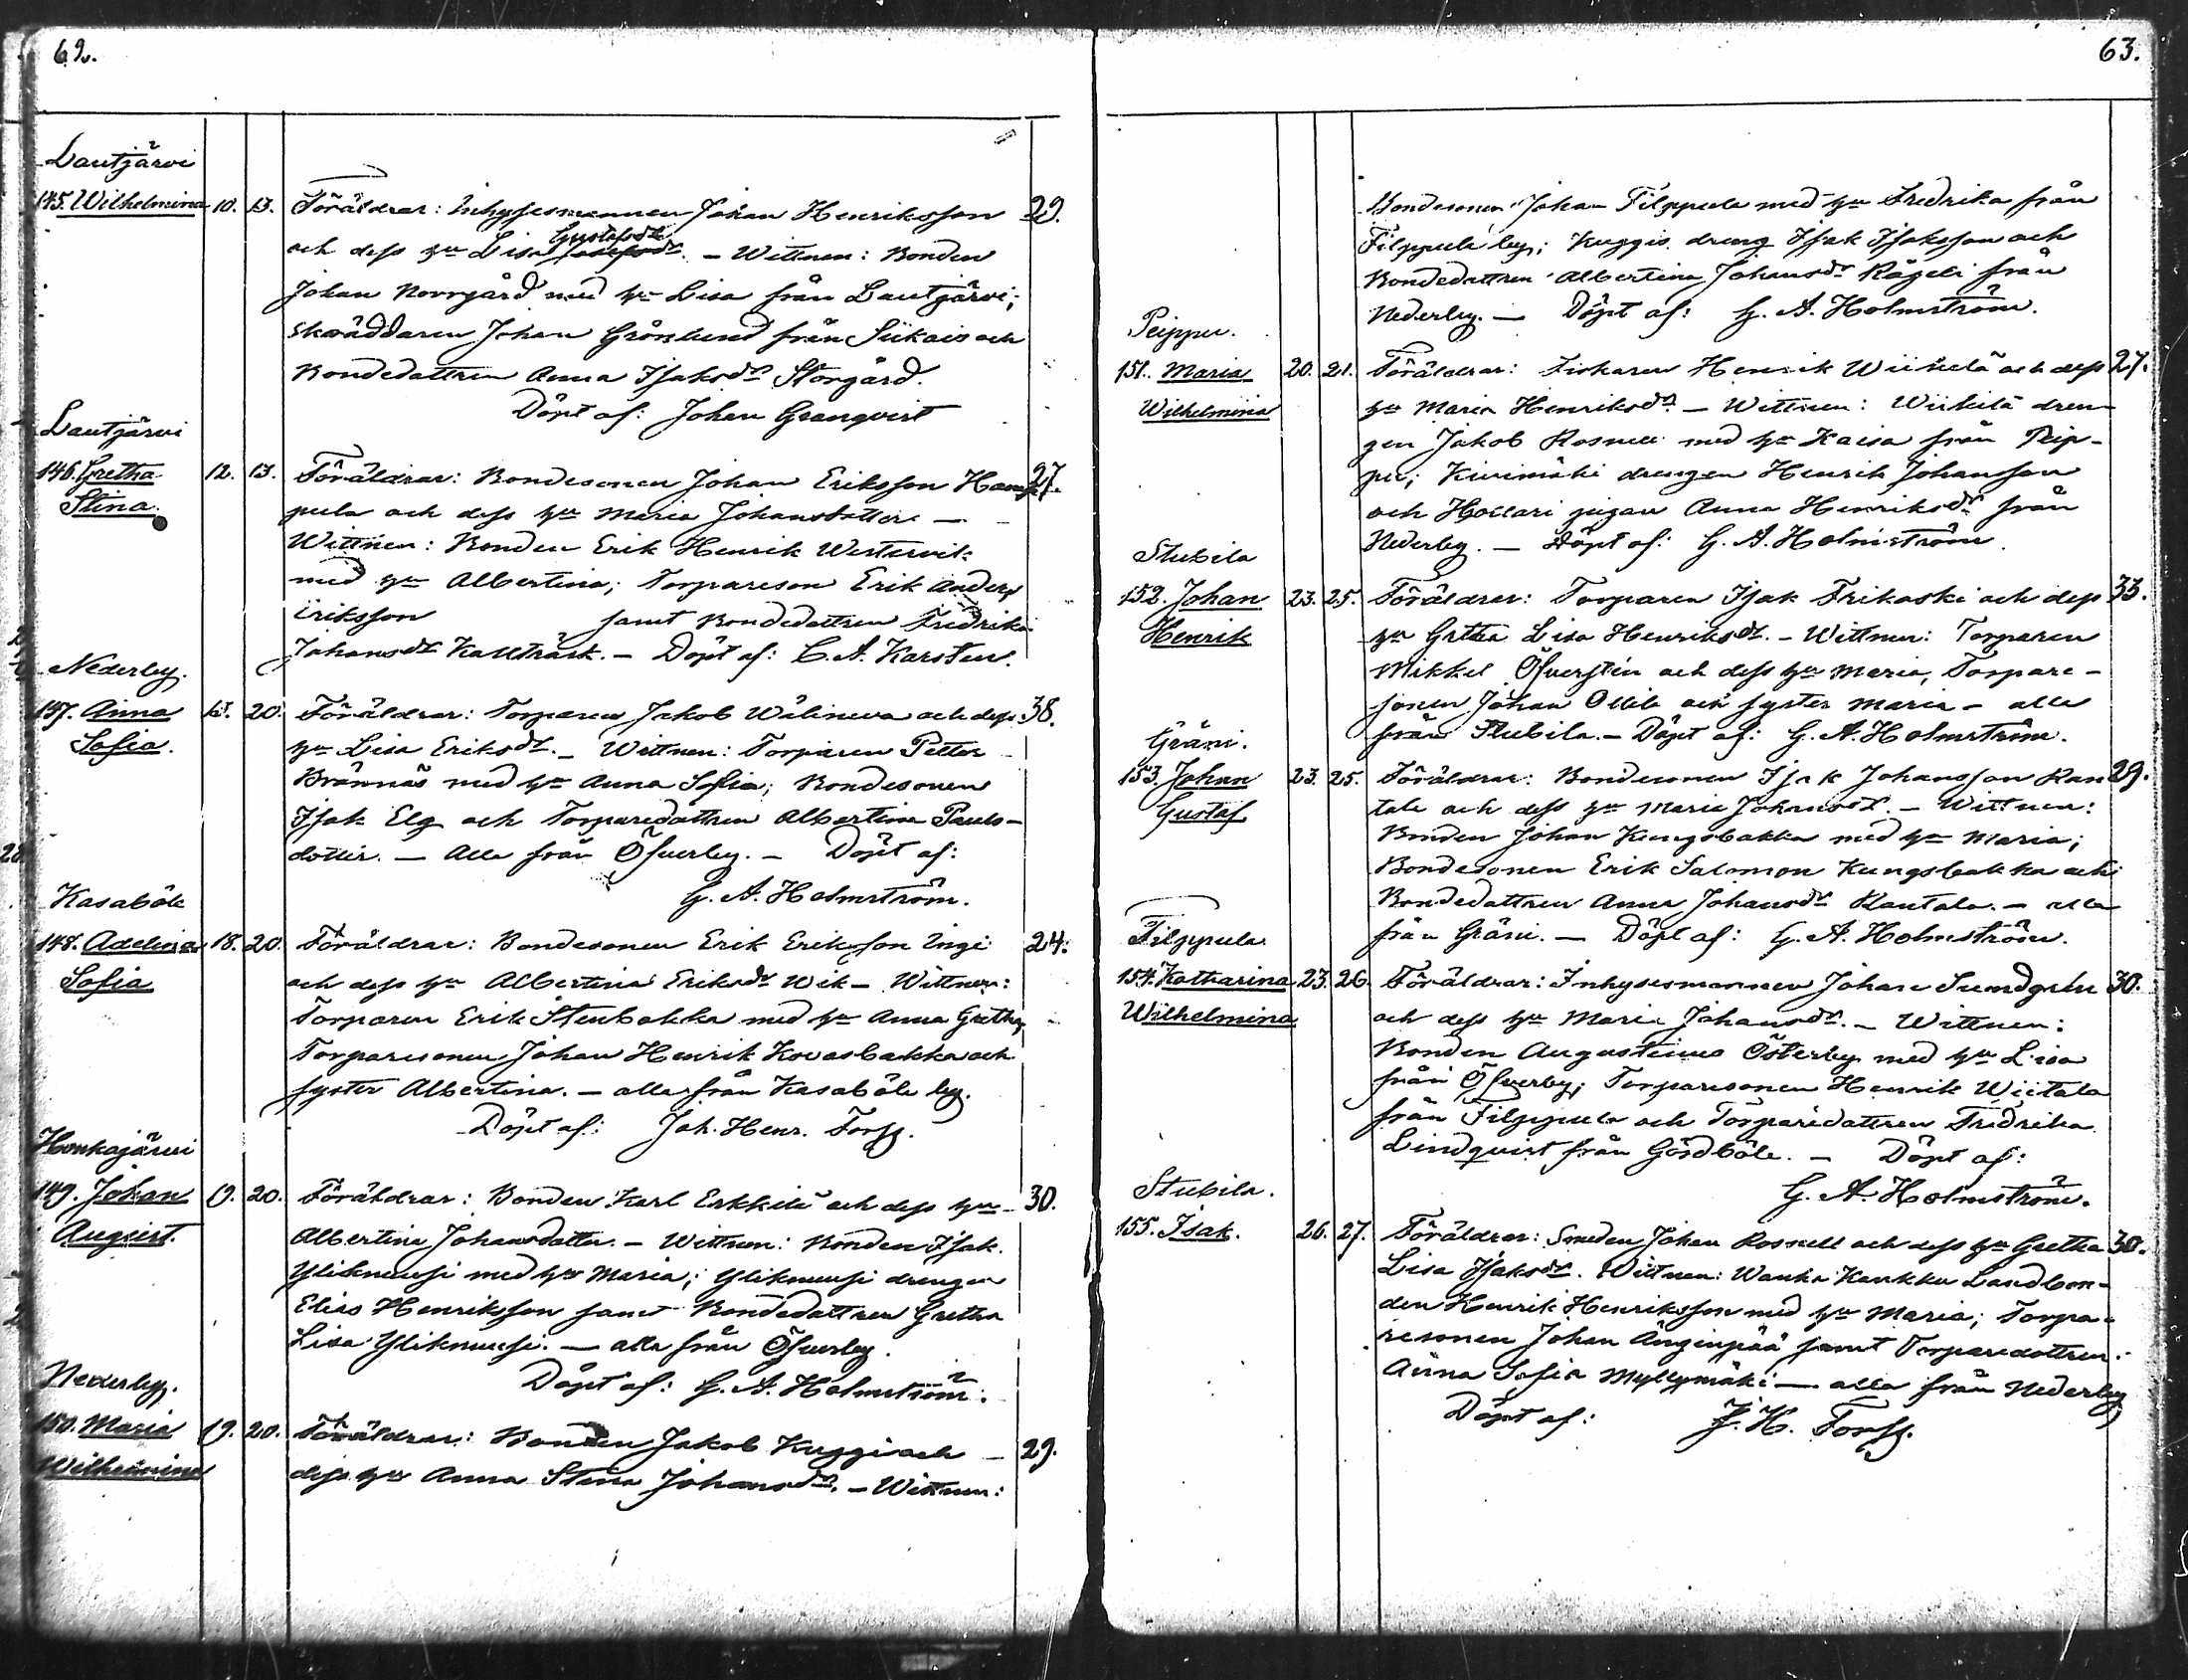 62.
Lautjärvi
145. Wilhelmina 10. 13. Föräldrar: Inhysesmannen Johan Henriksson 29.
Gustafsdr
och dess hu Lisa Josefsdr. – Wittnen: Bonden
Johan Norrgård med hu Lisa från Lautjärvi;
Skräddaren Johan Grönlund från Siikais och
Bondedattren Anna Isaksdr Storgård.
Döpt af: Johan Granqvist
Lautjärvi
146. Gretha 12. 13. Föräldrar: Bondesonen Johan Eriksson Hamp- 27.
Stina.
pula och dess hu Maria Johansdotter –
Wittnen: Bonden Erik Henrik Westervik
med hu Albertina; Torpareson Erik Anders
Eriksson samt Bondedattren Fredrika
Johansdr Kallträsk. – Döpt af: C. A. Karsten.
Nederby.
147. Anna 13. 20. Föräldrar: Torparen Jakob Wälineva och dess 38.
Sofia.
hu Lisa Eriksdr. – Wittnen: Torparen Petter
Brännäs med hu Anna Sofia; Bondesonen
Isak Elg och Torparedattren Albertina Pauls-
dotter. – Alla från Öfverby. – Döpt af:
G. A. Holmström.
Kasaböle
148. Adelina 18. 20. Föräldrar: Bondesonen Erik Eriksson Ingi 24.
Sofia
och dess hu Albertina Eriksdr Wik – Wittnen:
Torparen Erik Stenbakka med hu Anna Gretha,
Torparesonen Johan Henrik Kovasbakka och
syster Albertina. – alla från Kasaböle by.
Döpt af: Joh. Henr. Forss.
Honkajärvi
149. Johan 19. 20. Föräldrar: Bonden Karl Erkkilä och dess hu 30.
August.
Albertina Johansdotter. – Wittnen: Bonden Isak
Yliknuusi med hu Maria; Yliknuusi drengen
Elias Henriksson samt Bondedattren Gretha
Lisa Yliknuusi. – alla från Öfverby.
Döpt af: G. A. Holmström.
Nederby.
150. Maria 19. 20. Föräldrar: Bonden Jakob Kuggi och 29.
Wilhelmina
dess hu Anna Stina Johansdr. – Wittnen:
63.
Bondesonen Johan Filppula med hu Fredrika från
Filppula by; Kuggis dreng Isak Isaksson och
Bondedattren Albertina Johansdr Rågeli från
Nederby. – Döpt af: G. A. Holmström.
Peippu.
151. Maria 20. 21. Föräldrar: Fiskaren Henrik Wiikilä och dess 27.
Wilhelmina
hu Maria Henriksdr. – Wittnen: Wiikilä dren-
gen Jakob Rosnell med hu Kaisa från Peip-
pu; Kivimäki drengen Henrik Johansson
och Hollari pigan Anna Henriksdr från
Nederby. – Döpt af: G. A. Holmström.
Stubila
152. Johan 23. 25. Föräldrar: Torparen Isak Frikaski och dess 33.
Henrik
hu Gretha Lisa Henriksdr. – Wittnen: Torparen
Mikkel Öfversten och dess hu Maria, Torpare-
sonen Johan Ollila och syster Maria – alla
från Stubila. – Döpt af: G. A. Holmström.
Gräni.
153. Johan 23. 25. Föräldrar: Bondesonen Isak Johansson Ran- 29.
Gustaf
tala och dess hu Maria Johansdr. – Wittnen:
Bonden Johan Kungsbakka med hu Maria;
Bondesonen Erik Salomon Kungsbakka och
Bondedattren Anna Johansdr Rantala. – alla
från Gräni. – Döpt af: G. A. Holmström.
Filppula
154. Katharina 23. 26. Föräldrar: Inhysesmannen Johan Sundgren 30.
Wilhelmina
och dess hu Maria Johansdr. – Wittnen:
Bonden Augustinus Österby med hu Lisa
från Öfverby; Torparesonen Henrik Wiitala
från Filppula och Torparedattren Fredrika
Lindqvist från Gårdböle. – Döpt af:
G. A. Holmström.
Stubila.
155. Isak. 26. 27. Föräldrar: Smeden Johan Rosnell och dess hu Gretha 38.
Lisa Isaksdr. Wittnen: Wanha Kankku Landbon-
den Henrik Henriksson med hu Maria; Torpa-
resonen Johan Änginpää samt Torparedattren
Anna Sofia Myllymäki – alla från Nederby
Döpt af: J. H. Forss.